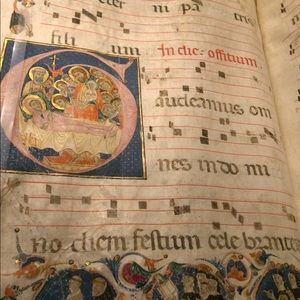 ni pa
fili um In die: offitium.
Gaudeamus om
nes in do mi
no diem festum cele brante